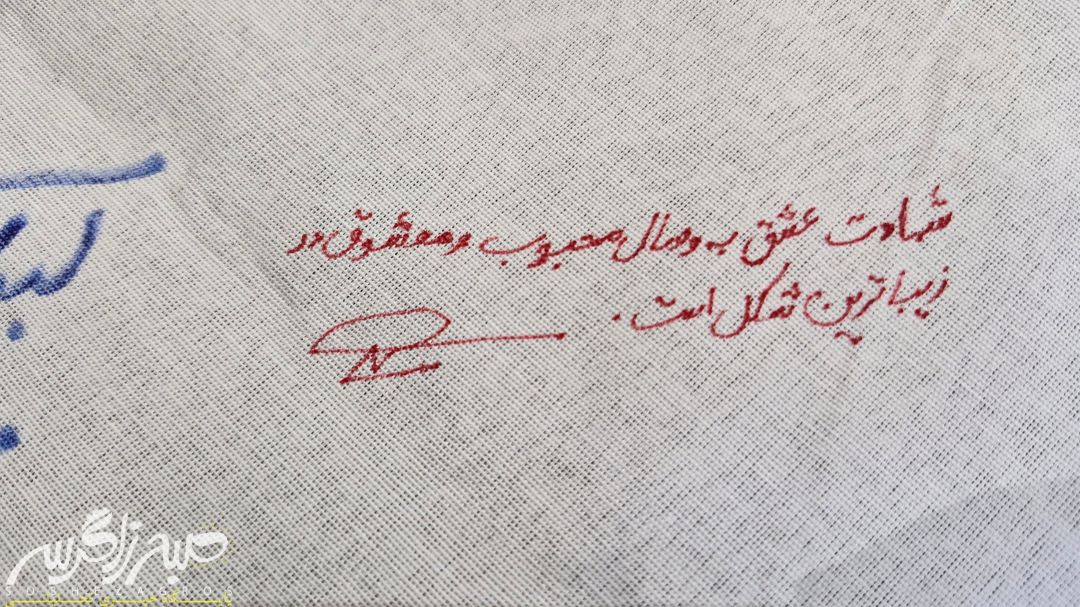 شهادت عشق به وصال محبوب و معشوق در
زیباترین شکل است.
صبح زاگرس
SOBHEZAGROS